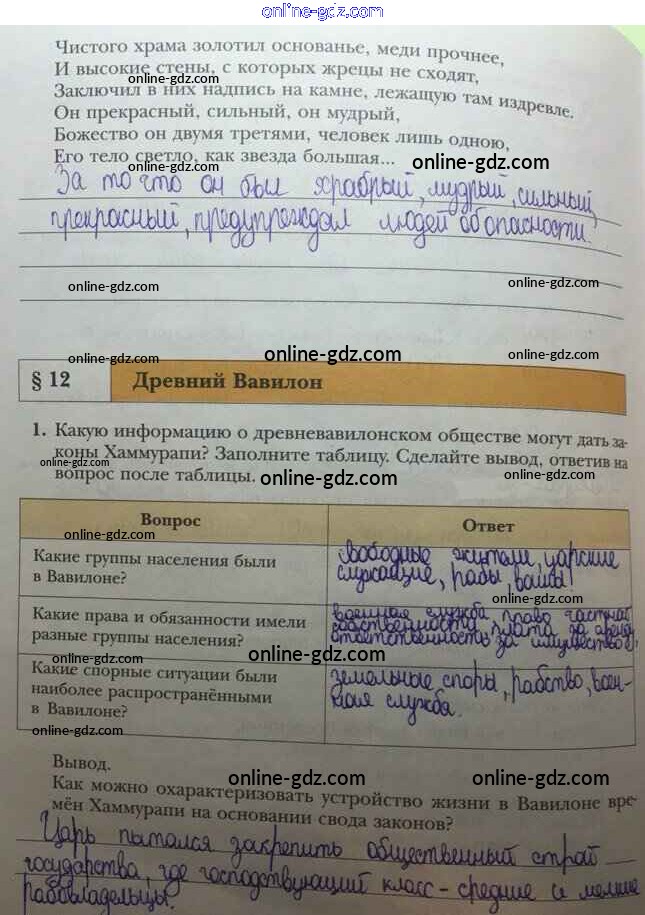 online-gdz.com
Чистого храма золотил основанье, меди прочнее,
И высокие стены, с которых жрецы не сходят,
online-gdz.com
Заключил в них надпись на камне, лежащую там издревле.
Он прекрасный, сильный, он мудрый,
Божество он двумя третями, человек лишь одною,
Его тело светло, как звезда большая...
online-gdz.com online-gdz.com
За то что он был храбрый, мудрый, сильный,
прекрасный, предупреждал людей об опасности.
online-gdz.com online-gdz.com
online-gdz.com online-gdz.com online-gdz.com
§ 12 Древний Вавилон
1. Какую информацию о древневавилонском обществе могут дать за-
коны Хаммурапи? Заполните таблицу. Сделайте вывод, ответив на
вопрос после таблицы.
online-gdz.com online-gdz.com online-gdz.com
Вопрос Ответ
online-gdz.com
Какие группы населения были
в Вавилоне?
свободные жители, царские
служащие, рабы,
online-gdz.com
Какие права и обязанности имели
разные группы населения?
военная служба, право частной
собственности, плата за аренду,
ответственность за имущество.
online-gdz.com
Какие спорные ситуации были
наиболее распространёнными
в Вавилоне?
земельные споры, рабство, воен-
ная служба.
online-gdz.com
Вывод.
online-gdz.com online-gdz.com
Как можно охарактеризовать устройство жизни в Вавилоне вре-
мён Хаммурапи на основании свода законов?
online-gdz.com online-gdz.com
Царь пытался закрепить общественный строй
государства, где господствующий класс - средние и мелкие
рабовладельцы.